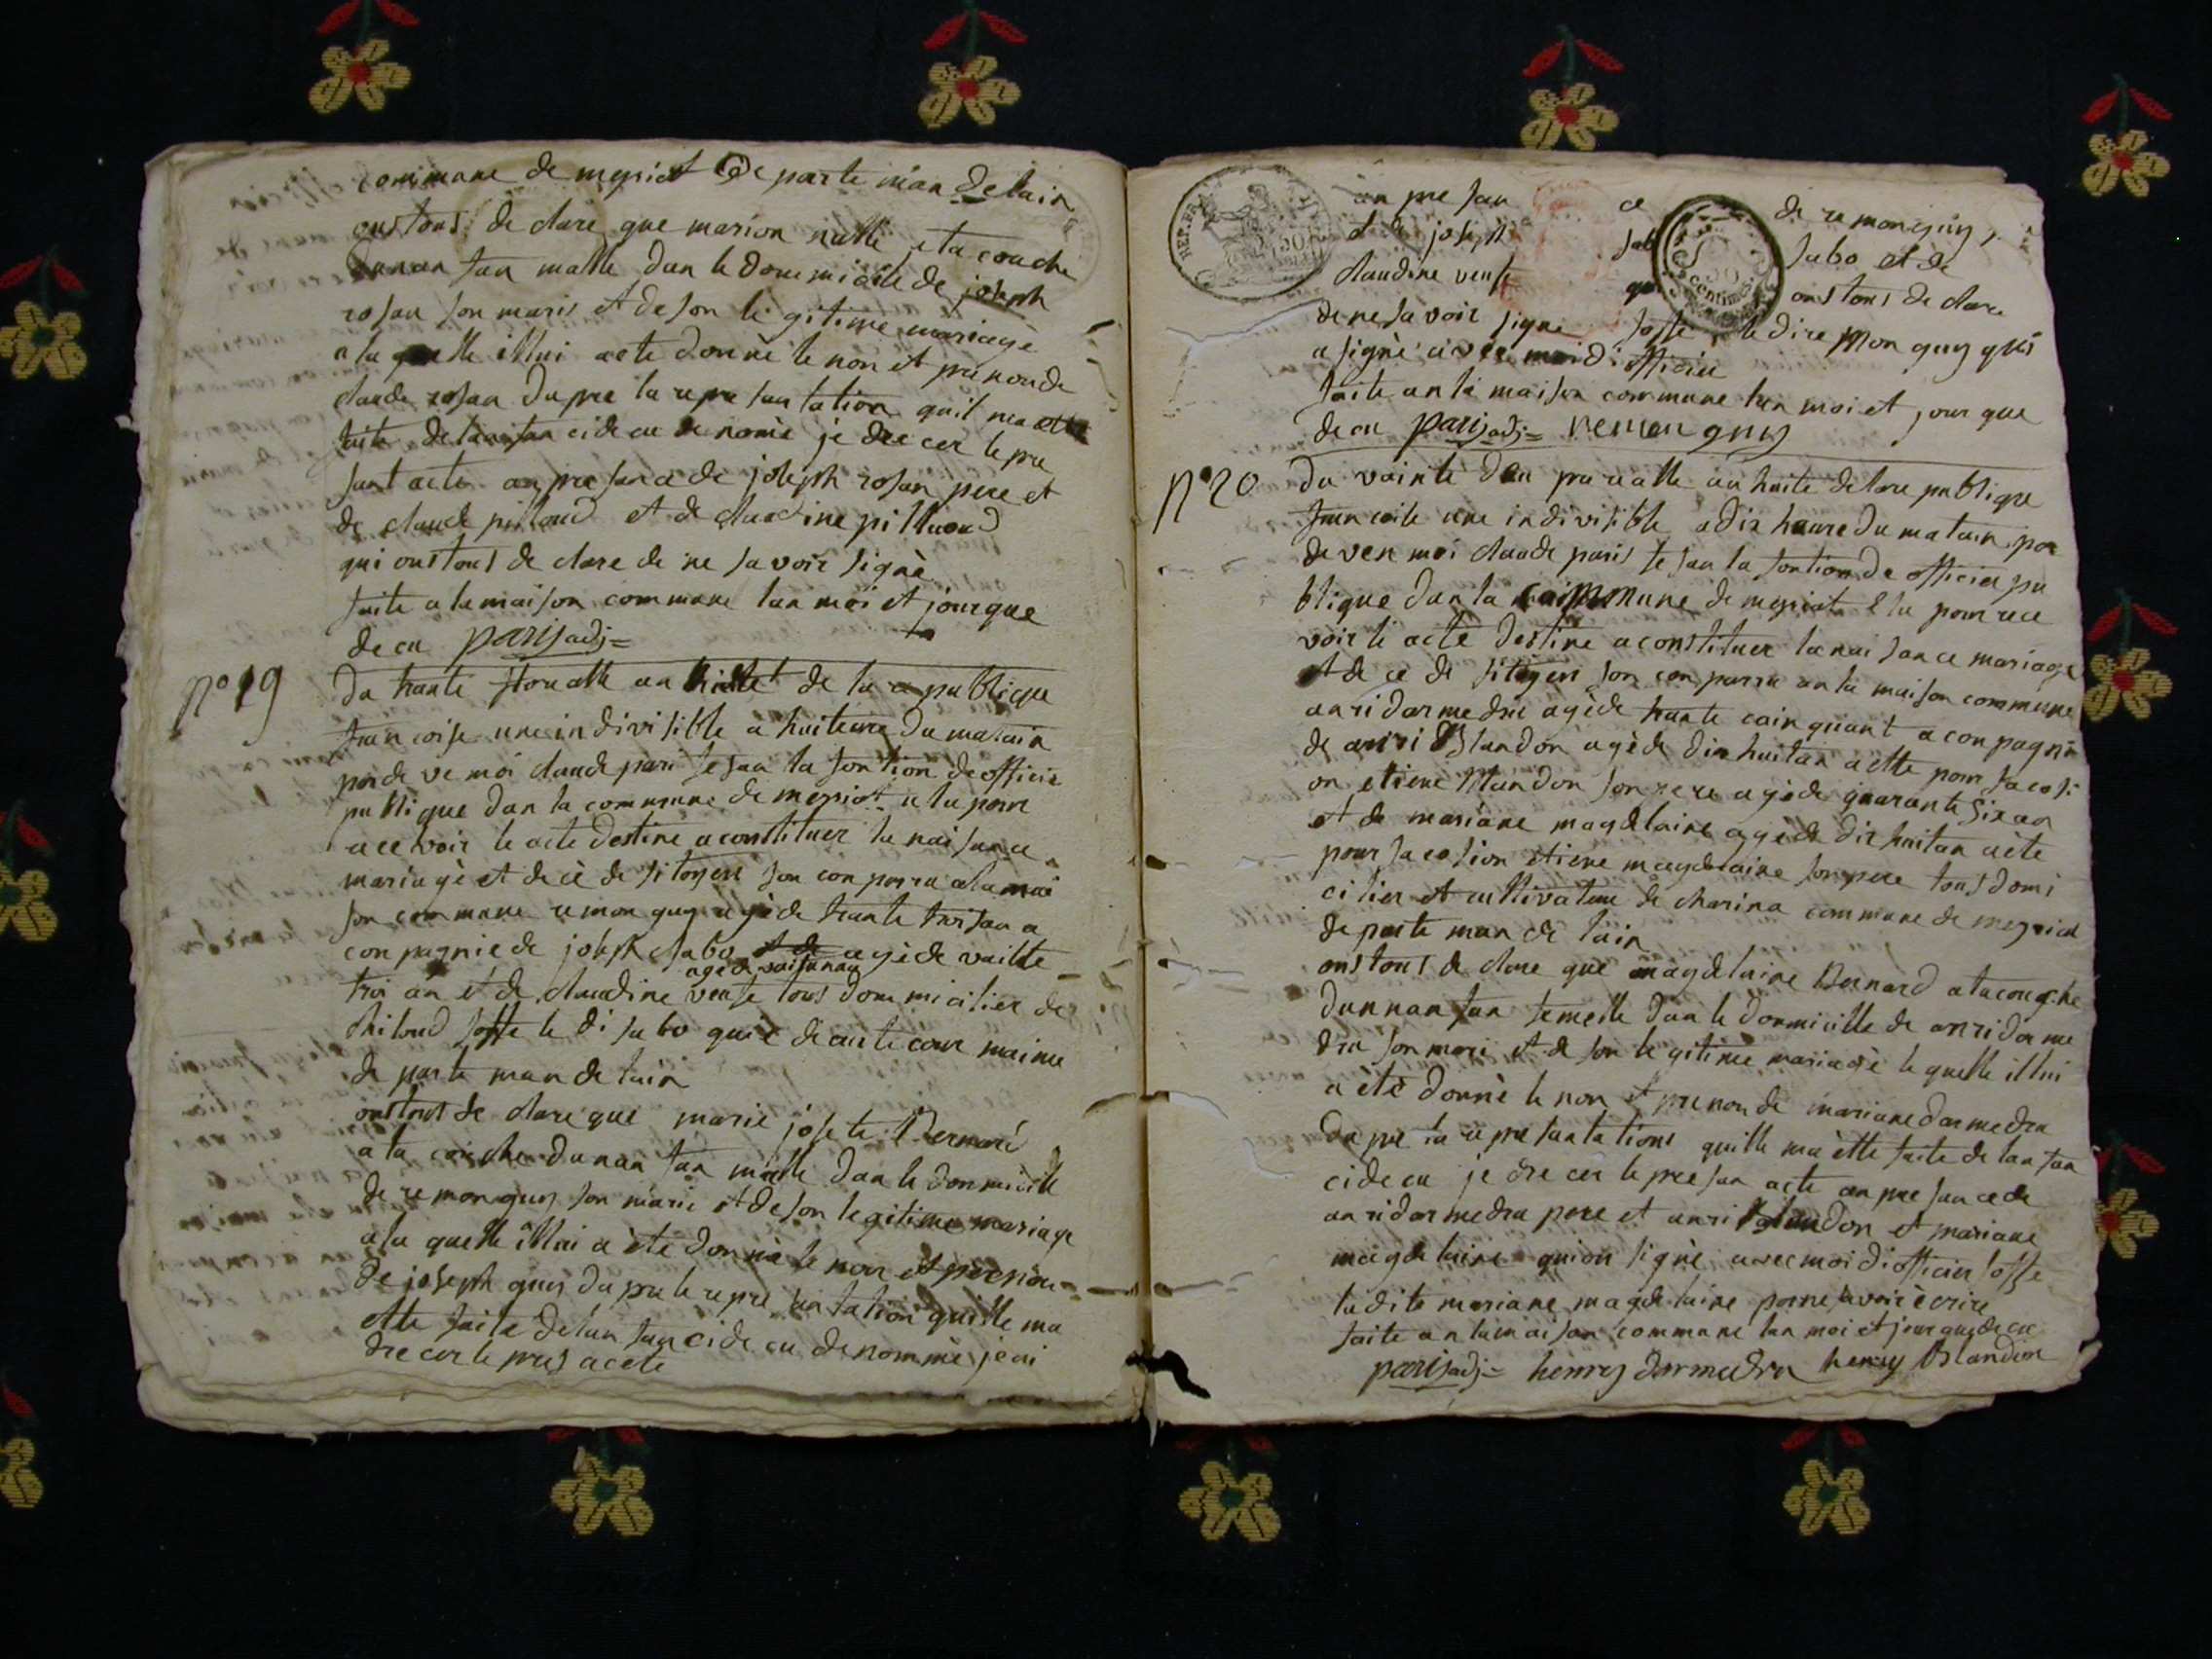 commune de mepriat de parte man de lain
onstous de clare que marion nallé eta couche
dunan fan malle dan le dommicile de joseph
rosan son maris et de son le gitime mariage
a la quelle illui aete donnè le non et prenon de
claude rosan dapre la repre santation quil ma ette
faite de lanfan cide cu de nomè je dre cer le pre
sant acte an pre sance de joseph rosan pere et
de claude pilloud et de claudine pilluoud
qui onstous de clare de ne savoir signè
faite a la maison commune lan moi et jour que
de cu parisadj=
n° 19
Du trante floralle an huitte de la re publique
francoise une indivisible a huiteure du matain
porde ve moi claude pari fesan la fontion de officie
publique dan la commune de mepriat elu pour
recevoir le acte destine a constituer la naisance
mariagè et decè de sitoyens son conparru ala mai
son commune remon guy agède trante troisan a
conpagnie de joseph sabo et de agède vaitte
agède vaitanan
troi an et de claudine veuse tous dommicilier de
chiloud soffe le di sabo qui è de aute cour maime
de parte man de lain
onstous de clare que marie josete Bernard
a la couche dunan fan malle dan le dommicille
de remonguy son marie et de son legitime mariage
ala quelle illui a ète donnè le non et prenon
de joseph guy dapre le repre santation quille ma
ette faite delan fan cide cu de nommè jeai
dre cer le pres acete
REP. FRA
50
centimes
an pre san ce de remonguy
et de joseph sab sabo et de
claudine veuse qui onstous de clare
de ne savoir signe soffe le dire Mon guy qui
a signè avec moi di officier
faite an la maison commune lan moi et jour que
de cu parisadj= remon guy
n° 20
Du vainte deu pre ralle an huite de lare publique
francoise une indivisible a dix heure du matain por
de ven moi claude paris fe san la fontion de officier pu
blique dan la commune de mepriat elu pour rece
voir le acte destine a constituer la nai sance mariage
et de ce de sitoyens son con parru an la maison commune
anri darmedru agède trante cainq ant a conpagni
de anri Blandon agède dix huitan a ette pour sa cosi
on etiene Blandon son pere agède quarante six an
et de mariane magdelaine agède dix huitan aète
pour sacosion etiene magdelaine son pere tous domi
cilier et cultivateur de charina commune de mepriat
de parte man de lain
onstous de clare que magdelaine Bernard a la couche
dunnan fan femelle dan le dommicille de anri dar me
dru son mari et de son legitime mariage le quelle illui
a ète donnè le non et prenon de mariane darmedru
dapre la re pre santations quille ma ètte faite de lan fan
cide cu je dre cer le pre san acte an pre sance de
anri darmedru pere et anri Blandon et mariane
magdelaine quion signè avec moi di officier soffe
la dite mariane magdelaine porne savoir ècrire
faite an la maison commune lan moi et jour que de cu
parisadj= henry darmedru henry Blandon